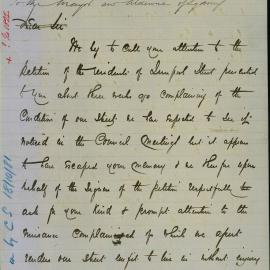 To the Mayor and Aldermen of Sydney
Dear Sir
We beg to call your attention to the
petition of the residents of Liverpool Street presented
to you about three weeks ago complaining of the
Condition of our Street we had expected to see it
noticed in the Council Meetings but it appears
to have escaped your memory & we therefore upon
behalf of the signers of the petition respectfully
ask for your kind & prompt attention to the
nuisance complained of which we assert
renders our Street unfit to live in without injury